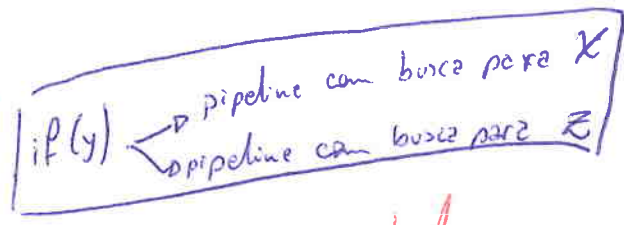 pipeline com busca para X
if(y)
pipeline com busca para Z